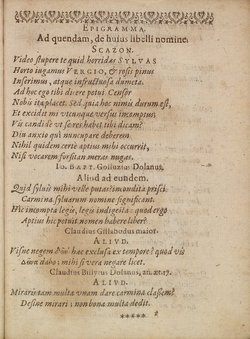 EPIGRAMMA,
Ad quendam, de huius libelli nomine.
SCAZON.
Video stupere te quid horridas SYLVAS
Horto iugamus VERGIO, & rosis pinus
Inserimus, atque dumeta.
Ad hoc ego tibi dicere potui. Censor
Nobis ita placet. Sed quia hoc nimis durum est,
Et excidit mi utcunque versus incomptus;
Vis candidè ut secreta habet tibi dicam?
Diu anxio qui nuncupare deberem
Nihil quidem certe aptius mihi occurrit,
Nisi vocarem forsitan meras nugas.
IO. BAPT. Dolanus.
Aliud ad eundem.
Quid sylvis mihi velle putas? incondita prisci
Carmina sylvarum nomine significant.
Hic incompta legis, legis indigesta: quod ergo
Aptius hic potuit nomen habere liber?
Claudius Gillabodus maior.
ALIVD.
Visne negem hic ex tempore? quod vis
dabo; mihi si vera negare licet.
Claudius Dolanus, an.
ALIVD.
Miraris tam multa unam dare carmina classem?
Desine mirari; non bona multa dedit.
*****